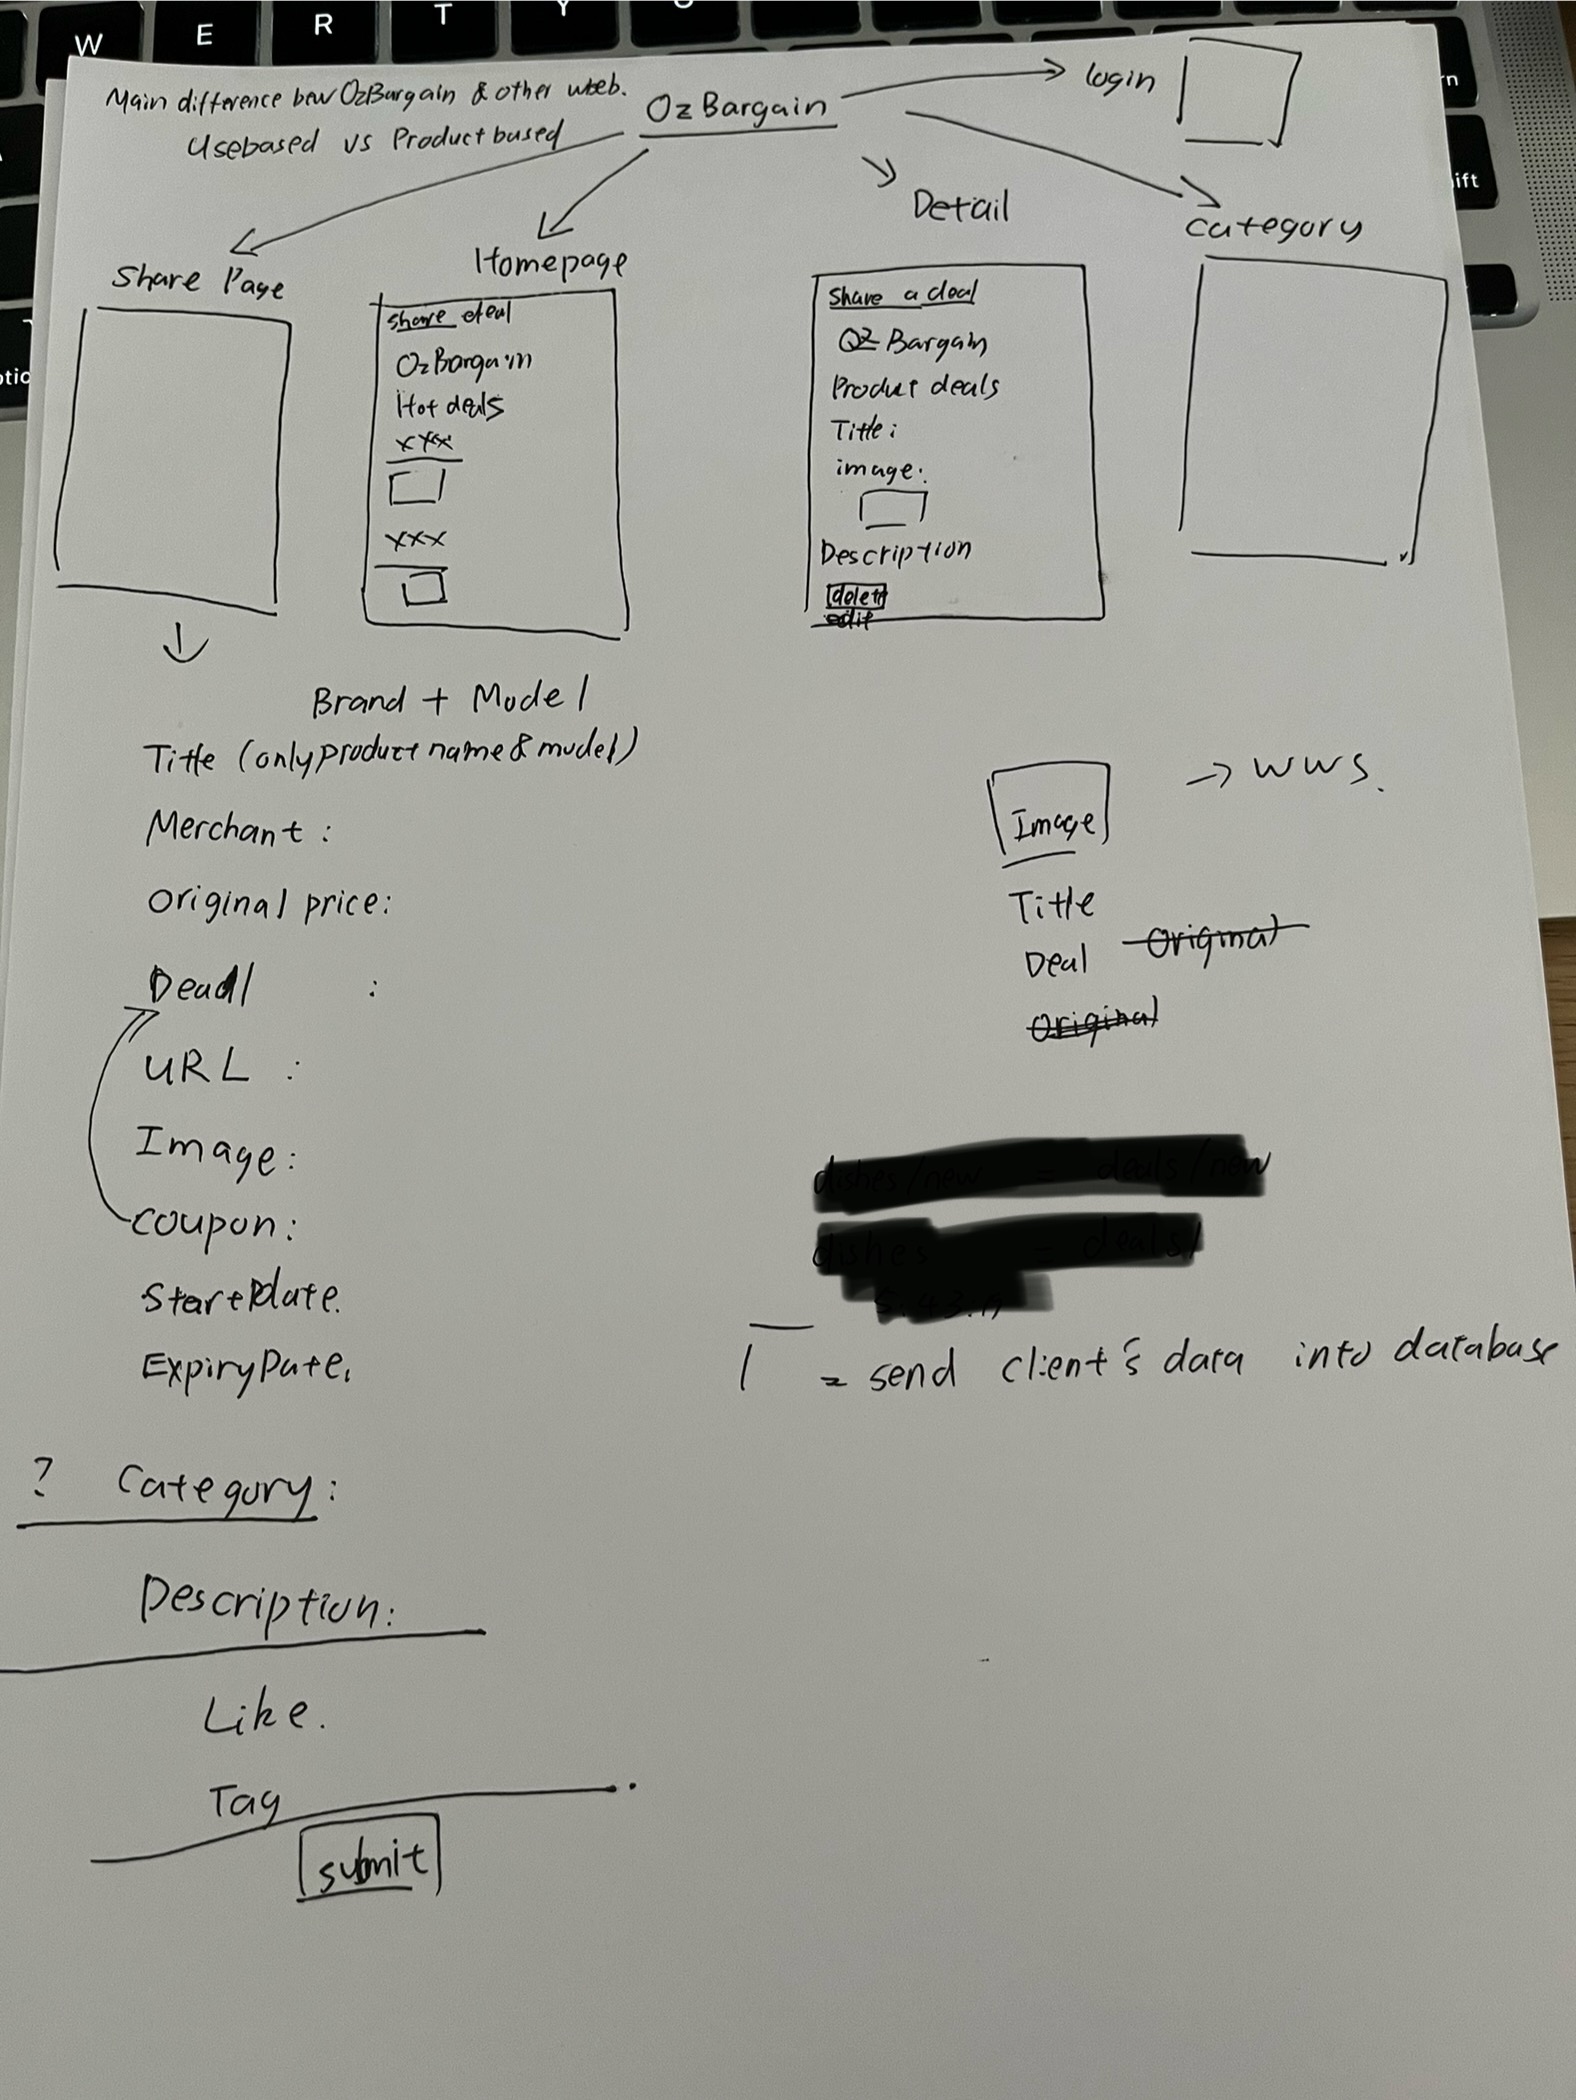 W E R T Y
Main difference bew OzBargain & other wbeb.
Usebased vs Productbased
OzBargain
login
Share Page
Homepage
Detail
category
share deal
OzBargain
Hot deals
xxx
xxx
Share a deal
OZ Bargain
Product deals
Title:
image:
Description
delete
edit
Brand + Model
Title (only product name & model)
Merchant :
Original price:
Deadl :
URL :
Image:
coupon:
Start Date.
ExpiryDate.
? Category:
Description:
Like.
Tag
submit
Image
→ WWS.
Title
Deal Original
Original
dishes/new = deals/new
dishes = deals/
= send client's data into database